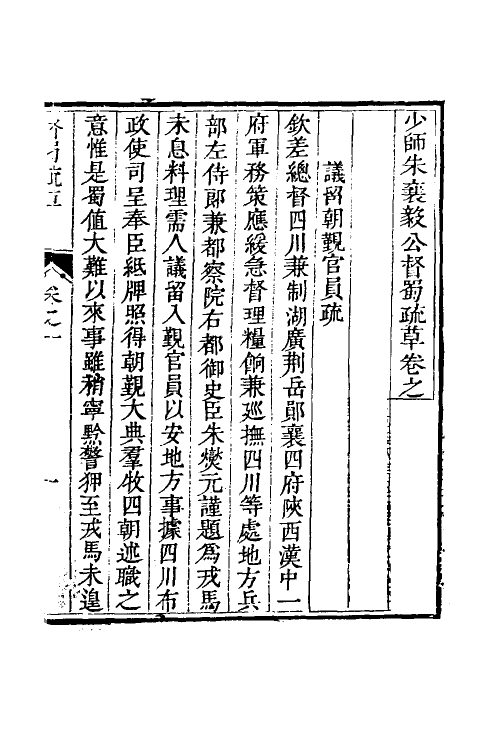 少師朱襄毅公督蜀疏草卷之
議留朝覲官員疏
欽差總督四川兼制湖廣荆岳鄖襄四府陜西漢中一
府軍務策應緩急督理糧餉兼廵撫四川等處地方兵
部左侍郎兼都察院右都御史臣朱燮元謹題爲戎馬
未息料理需人議留入覲官員以安地方事據四川布
政使司呈奉臣紙牌照得朝覲大典羣牧四朝述職之
意惟是蜀值大難以來事雖稍寧黔警狎至戎馬未遑
督蜀疏草
卷之一
一